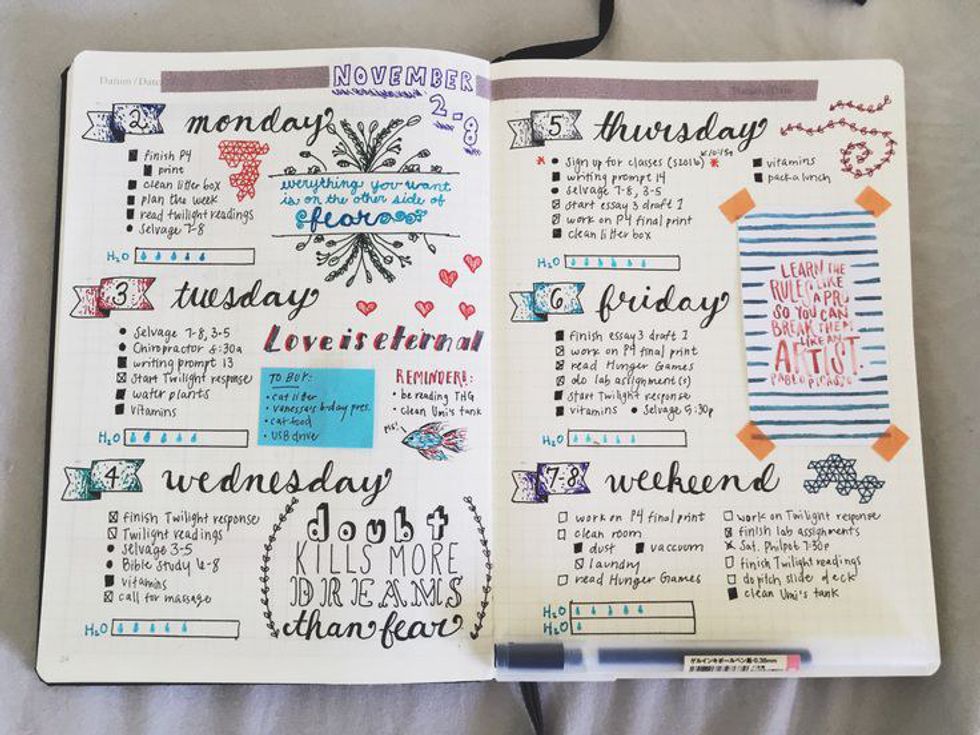 Datum / Date
NOVEMBER
2-8
2 monday
finish P4
print
clean litter box
plan the week
read twilight readings
Selvage 7-8
H2O
everything you want
is on the other side of
fear
3 tuesday
Selvage 7-8, 3-5
Chiropractor 8:30a
writing prompt 13
Start Twilight response
water plants
vitamins
H2O
Love is eternal
TO BUY:
cat litter
vanessa's b-day pres.
cat food
USB drive
REMINDER!:
be reading THG
clean Umi's tank
pls!
4 wednesday
finish Twilight response
Twilight readings
Selvage 3-5
Bible Study 6-8
vitamins
call for massage
H2O
doubt
KILLS MORE
DREAMS
than fear
5 thursday
Sign up for classes (S2016)
writing prompt 14
Selvage 7-8, 3-5
start essay 3 draft 1
work on P4 final print
clean litter box
vitamins
pack a lunch
H2O
6 friday
finish essay 3 draft 1
work on P4 final print
read Hunger Games
do lab assignment(s)
start Twilight response
vitamins Selvage 5:30p
H2O
LEARN THE
RULES LIKE
A PRO
SO YOU CAN
BREAK THEM
LIKE AN
ARTIST.
PABLO PICASSO
7-8 weekend
work on P4 final print
clean room
dust vaccuum
laundry
read Hunger Games
work on Twilight response
finish lab assignments
Sat. Philpot 7:30p
finish Twilight readings
do pitch slide deck
clean Umi's tank
H2O
H2O
ゲルインキボールペン 0.38mm